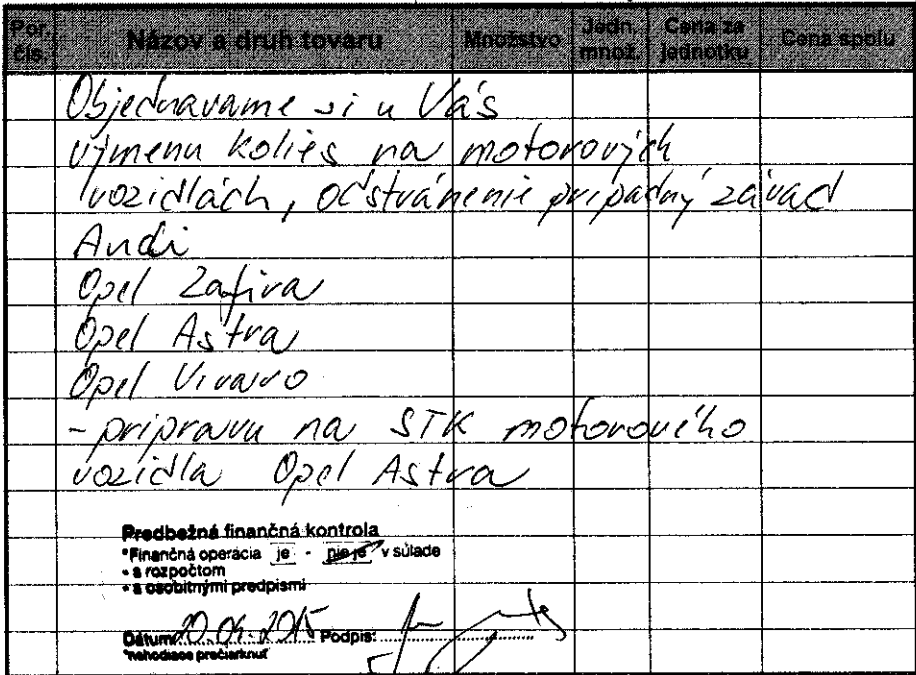 Por. čís. Názov a druh tovaru Množstvo Jedn. množ. Cena za jednotku Cena spolu
Objednavame si u Vás
výmenu kolies na motorových
vozidlách, odstránenie prípadný závad
Audi
Opel Zafira
Opel Astra
Opel Vivaro
- pripravu na STK motorového
vozidla Opel Astra
Predbežná finančná kontrola
*Finančná operácia je - nie je v súlade
- s rozpočtom
- s osobitnými predpismi
Dátum: 20.04.2015 Podpis:
*nehodiace prečiarknuť